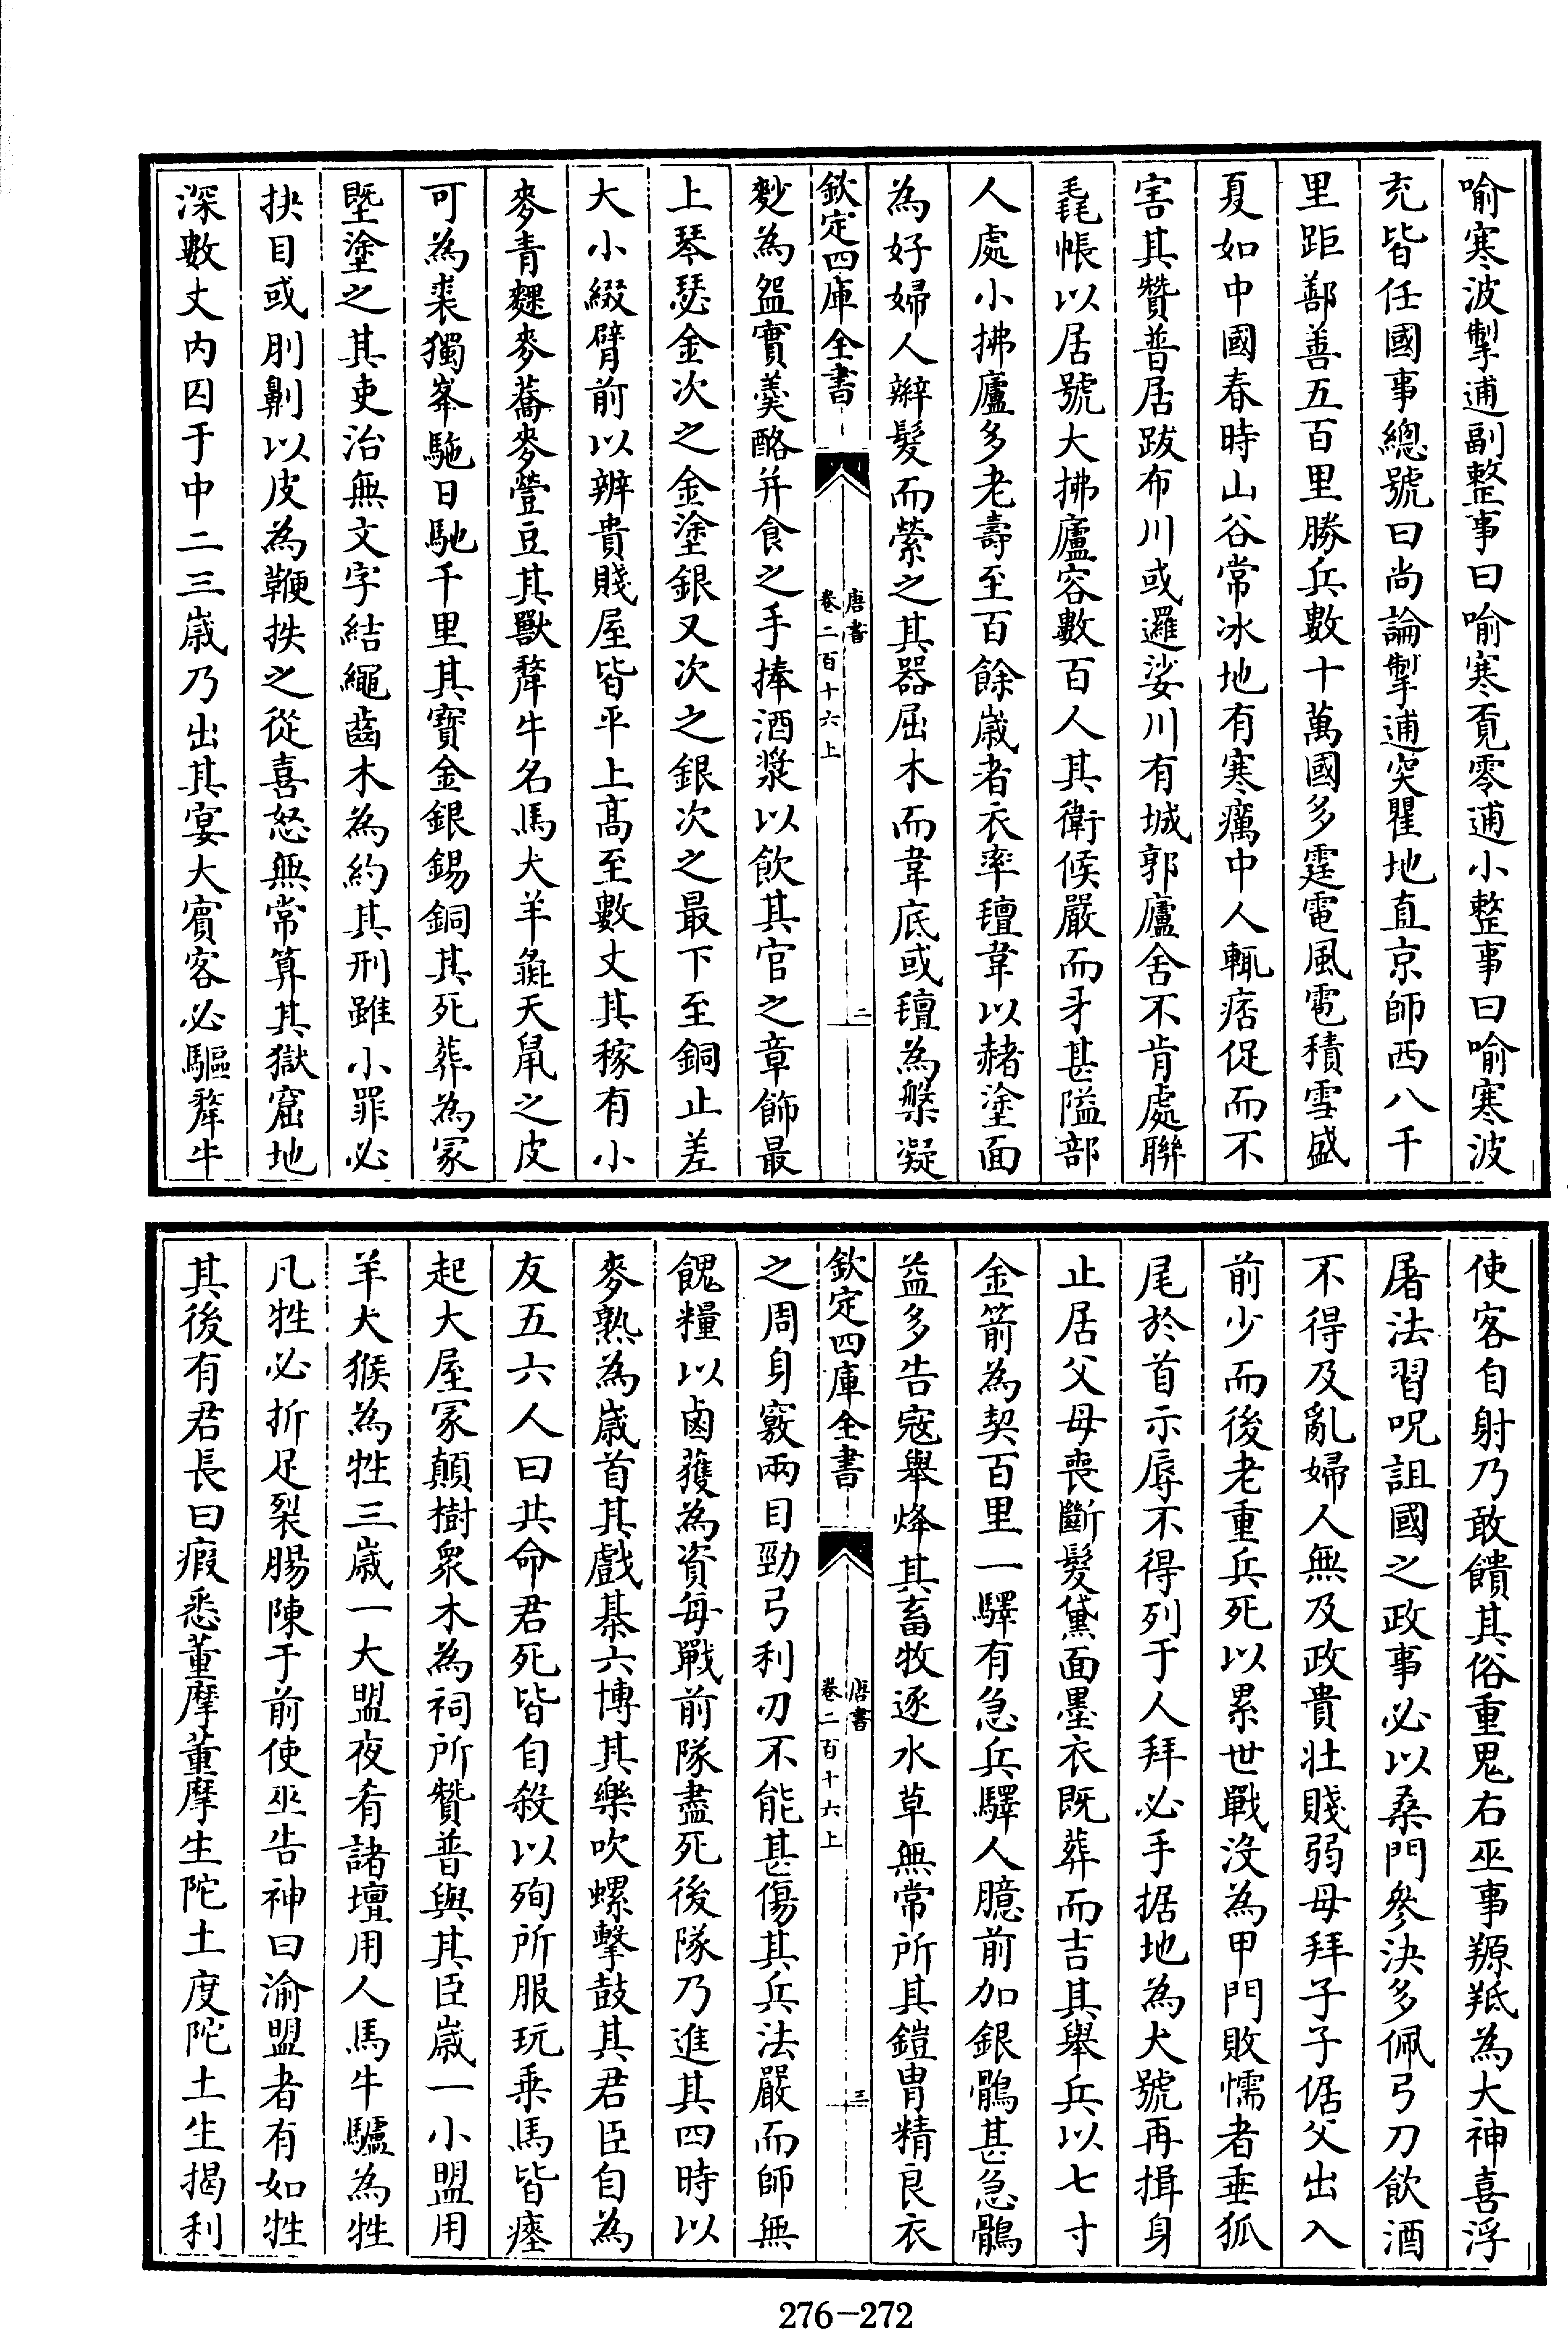 喻寒波掣逋副整事曰喻寒覔零逋小整事曰喻寒波
充皆任國事總號曰尚論掣逋突瞿地直京師西八千
里距鄯善五百里勝兵數十萬國多霆電風雹積雪盛
夏如中國春時山谷常冰地有寒癘中人輒痞促而不
害其贊普居跋布川或邏娑川有城郭廬舍不肯處聯
毳帳以居號大拂廬容數百人其衛候嚴而牙甚隘部
人處小拂廬多老壽至百餘歲者衣率氊韋以赭塗面
為好婦人辮髮而縈之其器屈木而韋底或氊為槃凝
欽定四庫全書
唐書
卷二百十六上
二
麨為盌實羹酪并食之手捧酒漿以飲其官之章飾最
上琴瑟金次之金塗銀又次之銀次之最下至銅止差
大小綴臂前以辨貴賤屋皆平上高至數丈其稼有小
麥青稞麥蕎麥䝁豆其獸犛牛名馬犬羊彘天鼠之皮
可為裘獨峯駞日馳千里其寶金銀錫銅其死葬為冢
塈塗之其吏治無文字結繩齒木為約其刑雖小罪必
抉目或刖劓以皮為鞭抶之從喜怒無常算其獄窟地
深數丈内囚于中二三歲乃出其宴大賓客必驅犛牛
使客自射乃敢饋其俗重鬼右巫事羱羝為大神喜浮
屠法習呪詛國之政事必以桑門參決多佩弓刀飲酒
不得及亂婦人無及政貴壯賤弱母拜子子倨父出入
前少而後老重兵死以累世戰沒為甲門敗懦者垂狐
尾於首示辱不得列于人拜必手据地為犬號再揖身
止居父母喪斷髮黛面墨衣既葬而吉其舉兵以七寸
金箭為契百里一驛有急兵驛人臆前加銀鶻甚急鶻
益多告寇舉烽其畜牧逐水草無常所其鎧胄精良衣
欽定四庫全書
唐書
卷二百十六上
三
之周身竅兩目勁弓利刃不能甚傷其兵法嚴而師無
餽糧以鹵獲為資每戰前隊盡死後隊乃進其四時以
麥熟為歲首其戲棊六博其樂吹螺擊鼓其君臣自為
友五六人曰共命君死皆自殺以殉所服玩乗馬皆瘞
起大屋冢顛樹衆木為祠所贊普與其臣歲一小盟用
羊犬猴為牲三歲一大盟夜肴諸壇用人馬牛驢為牲
凡牲必折足裂腸陳于前使巫告神曰渝盟者有如牲
其後有君長曰瘕悉董摩董摩生陀土度陀土生揭利
276-272